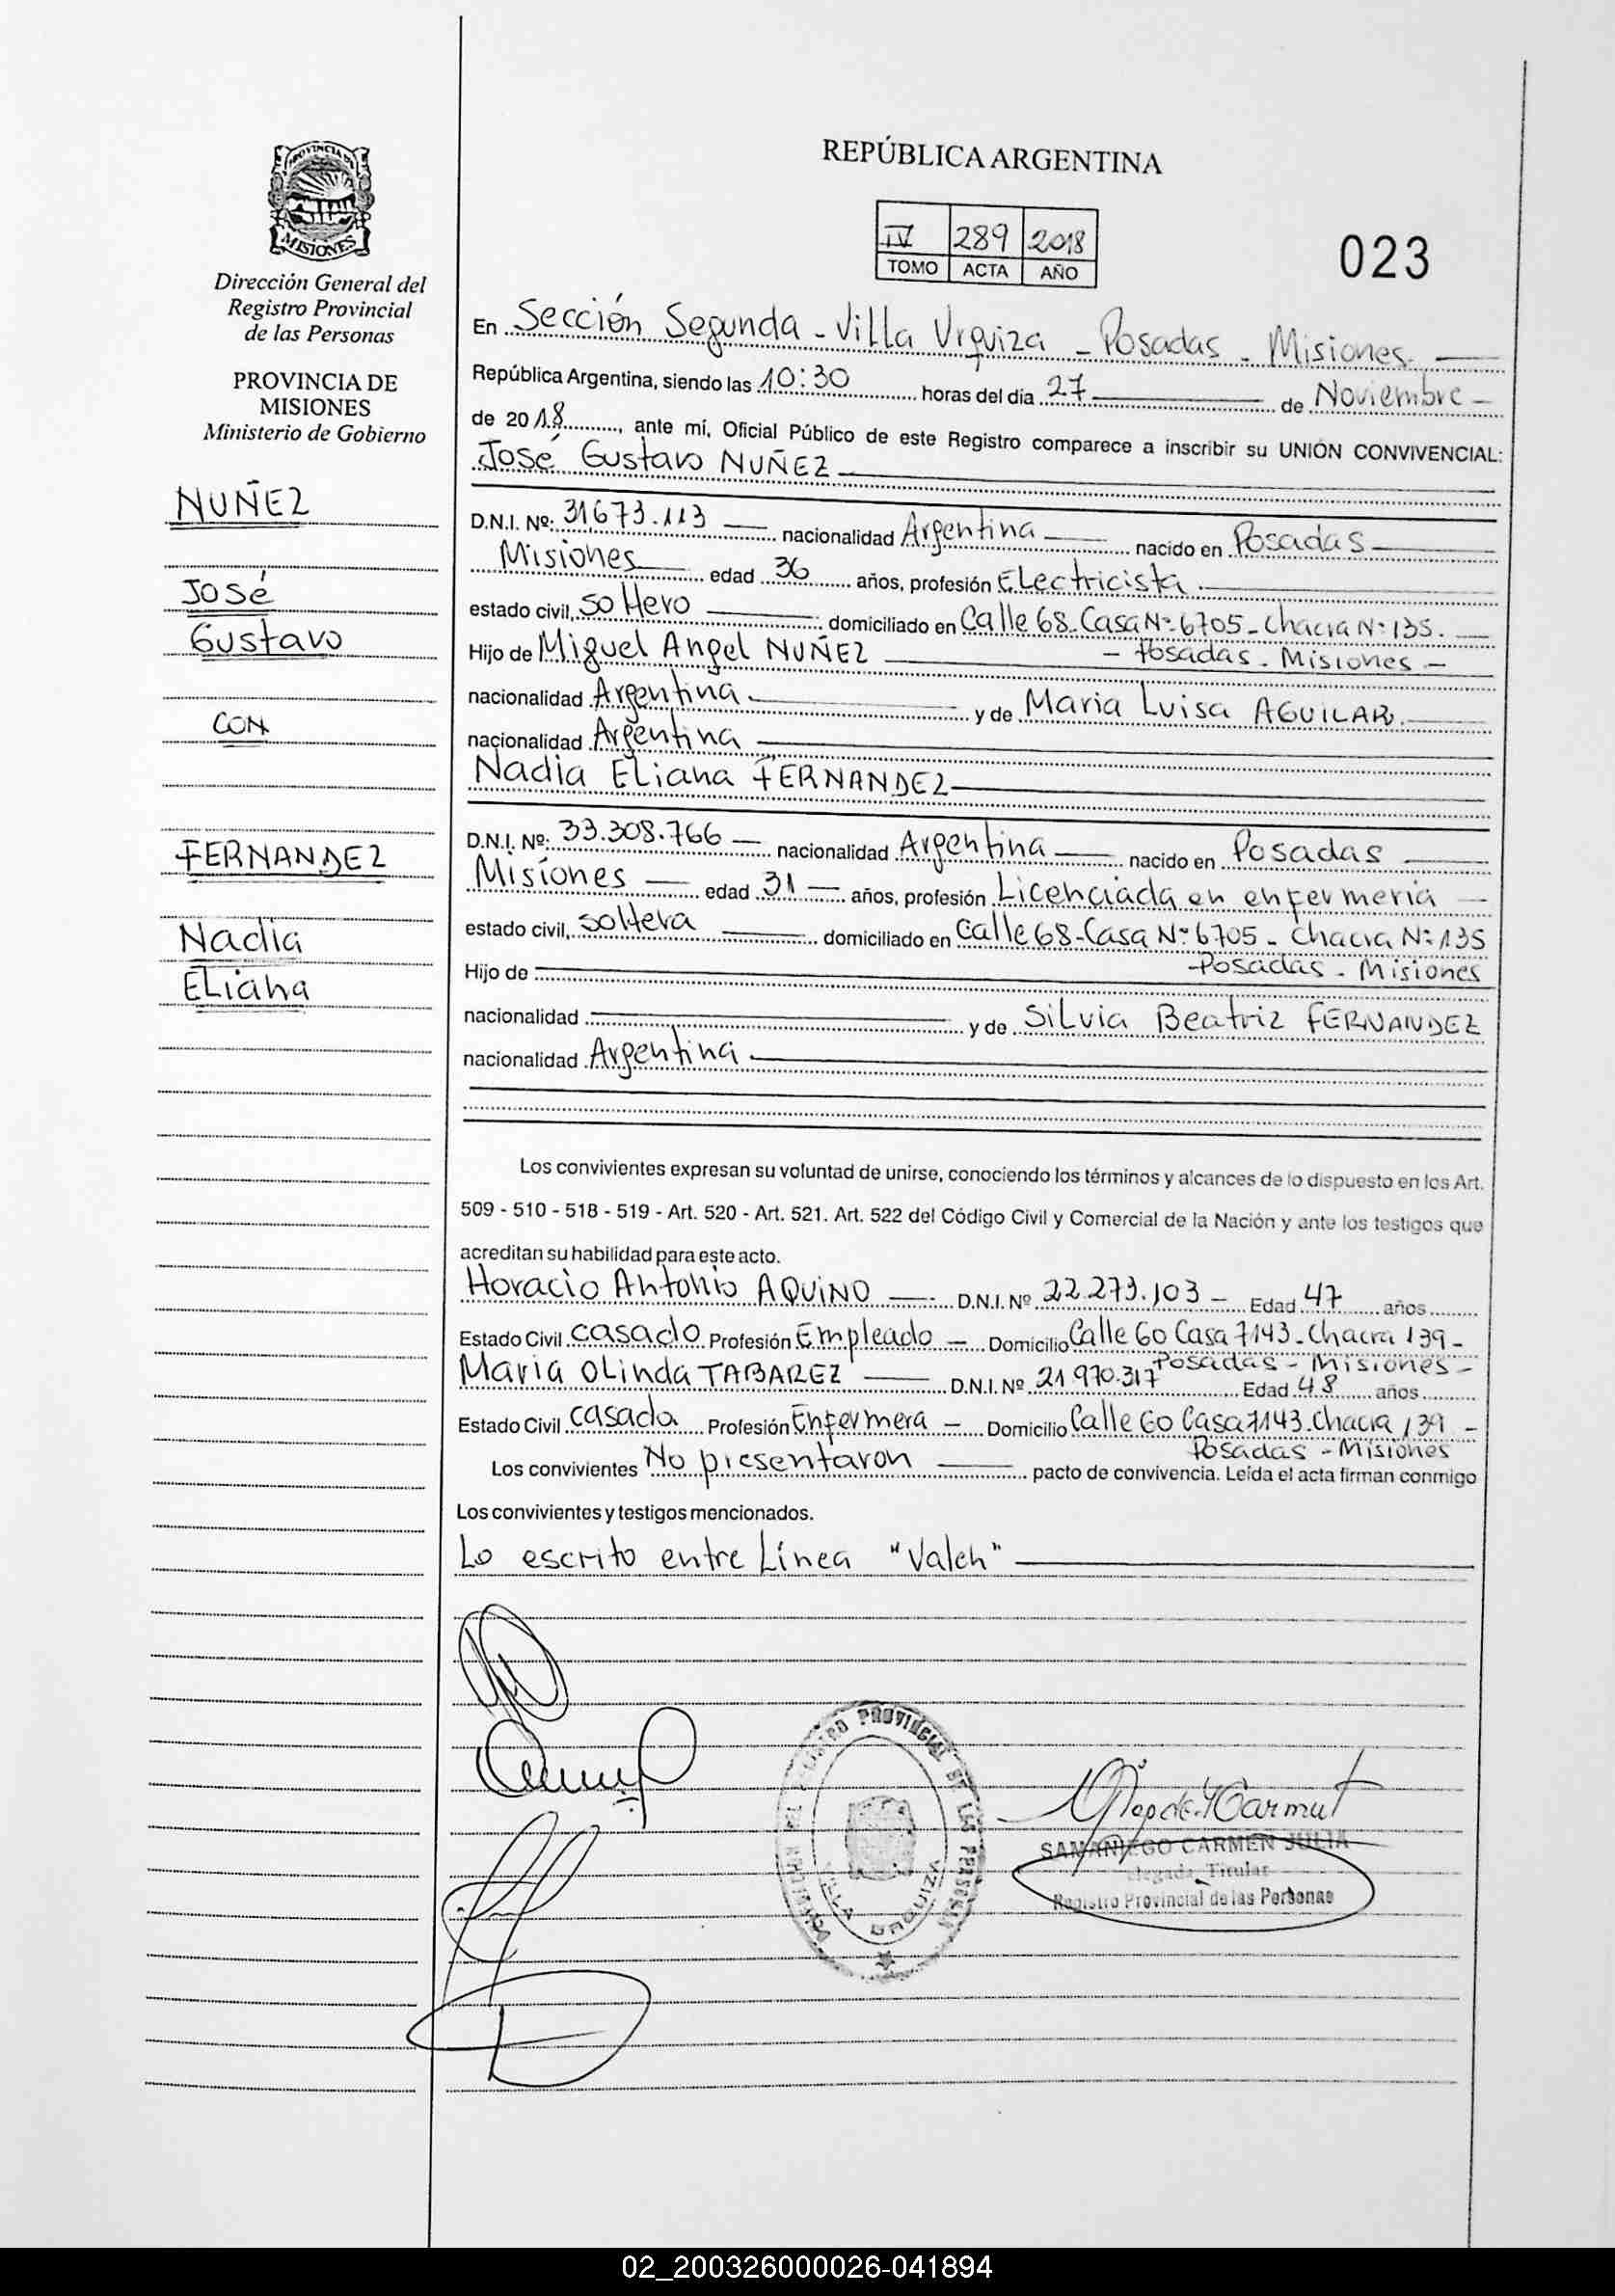 PROVINCIA DE
MISIONES
Dirección General del
Registro Provincial
de las Personas
PROVINCIA DE
MISIONES
Ministerio de Gobierno
NUÑEZ
José
Gustavo
CON
FERNANDEZ
Nadia
Eliana
REPÚBLICA ARGENTINA
IV 289 2018
TOMO ACTA AÑO
023
En Sección Segunda - Villa Urquiza - Posadas - Misiones.
República Argentina, siendo las 10:30 horas del día 27 de Noviembre -
de 2018, ante mí, Oficial Público de este Registro comparece a inscribir su UNIÓN CONVIVENCIAL:
José Gustavo NUÑEZ
D.N.I. Nº: 31673.113 nacionalidad Argentina nacido en Posadas
Misiones edad 36 años, profesión Electricista
estado civil, soltero domiciliado en Calle 68-Casa Nº 6705-Chacra Nº 135.
Hijo de Miguel Angel NUÑEZ - Posadas - Misiones -
nacionalidad Argentina y de Maria Luisa AGUILAR.
nacionalidad Argentina
Nadia Eliana FERNANDEZ
D.N.I. Nº: 33.308.766 nacionalidad Argentina nacido en Posadas
Misiones edad 31 años, profesión Licenciada en enfermeria
estado civil, soltera domiciliado en Calle 68-Casa Nº 6705 - Chacra Nº 135
Hijo de -Posadas - Misiones
nacionalidad y de Silvia Beatriz FERNANDEZ
nacionalidad Argentina
Los convivientes expresan su voluntad de unirse, conociendo los términos y alcances de lo dispuesto en los Art.
509 - 510 - 518 - 519 - Art. 520 - Art. 521. Art. 522 del Código Civil y Comercial de la Nación y ante los testigos que
acreditan su habilidad para este acto.
Horacio Antonio AQUINO D.N.I. Nº 22.273.103 - Edad 47 años
Estado Civil casado Profesión Empleado - Domicilio Calle 60 Casa 7143-Chacra 139-
Posadas - Misiones -
Maria Olinda TABAREZ D.N.I. Nº 21970.317 Edad 48 años
Estado Civil casada Profesión Enfermera - Domicilio Calle 60 Casa 7143.Chacra 139 -
Posadas - Misiones
Los convivientes No presentaron pacto de convivencia. Leída el acta firman conmigo
Los convivientes y testigos mencionados.
Lo escrito entre Línea "Valen"
REGISTRO PROVINCIAL DE LAS PERSONAS
VILLA URQUIZA
SAMANIEGO CARMEN JULIA
Titular
Registro Provincial de las Personas
02_200326000026-041894